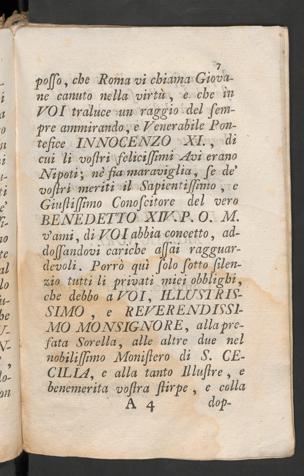 7
posso, che Roma vi chiama Giova-
ne canuto nella virtù, e che in
VOI traluce un raggio del sem-
pre ammirando, e Venerabile Pon-
tefice INNOCENZO XI., di
cui li vostri felicissimi Avi erano
Nipoti; nè fia maraviglia, se de'
vostri meriti il Sapientissimo, e
Giustissimo Conoscitore del vero
BENEDETTO XIV. P. O. M.
v'ami, di VOI abbia concetto, ad-
dossandovi cariche assai ragguar-
devoli. Porrò quì solo sotto silen-
zio tutti li privati miei obblighi,
che debbo a VOI, ILLUSTRIS-
SIMO, e REVERENDISSI-
MO MONSIGNORE, alla pre-
fata Sorella, alle altre due nel
nobilissimo Monistero di S. CE-
CILIA, e alla tanto Illustre, e
benemerita vostra stirpe, e colla
A 4 dop-